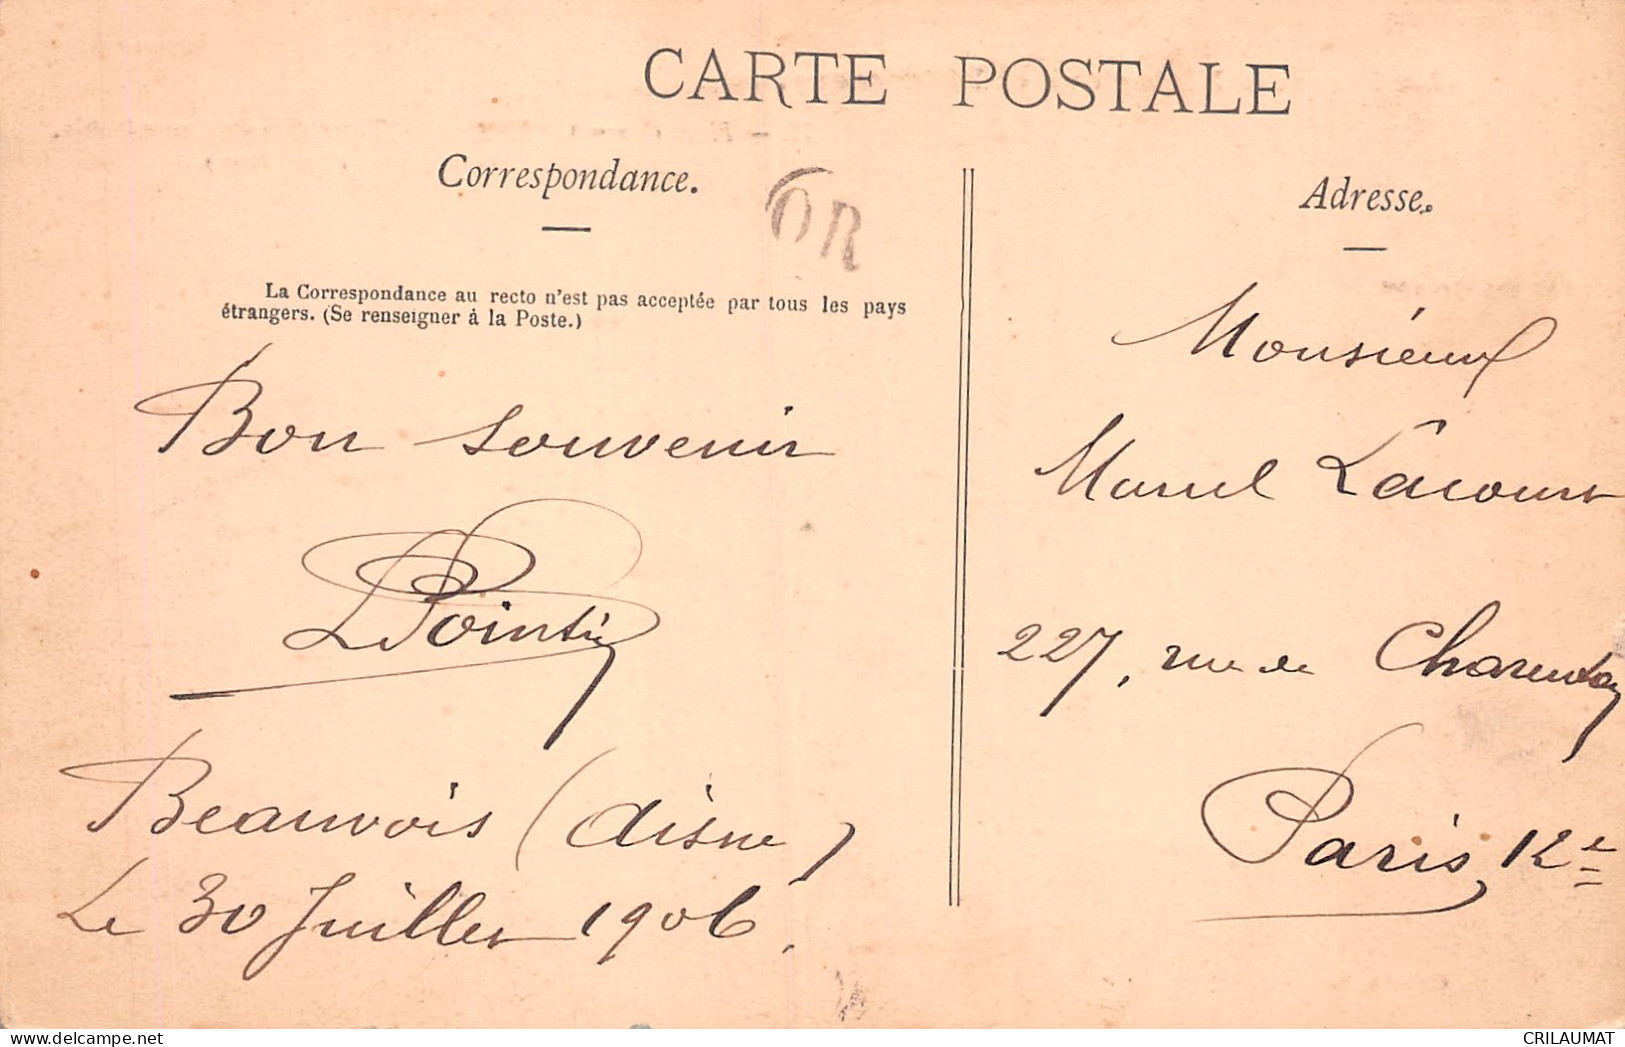 CARTE POSTALE
Correspondance.
OR
La Correspondance au recto n'est pas acceptée par tous les pays
étrangers. (Se renseigner à la Poste.)
Bon souvenir
LPointin
Beauvois (Aisne)
Le 30 Juillet 1906.
Adresse.
Monsieur
Marcel Lacour
227, rue de Charenton
Paris, 12e
CRILAUMAT